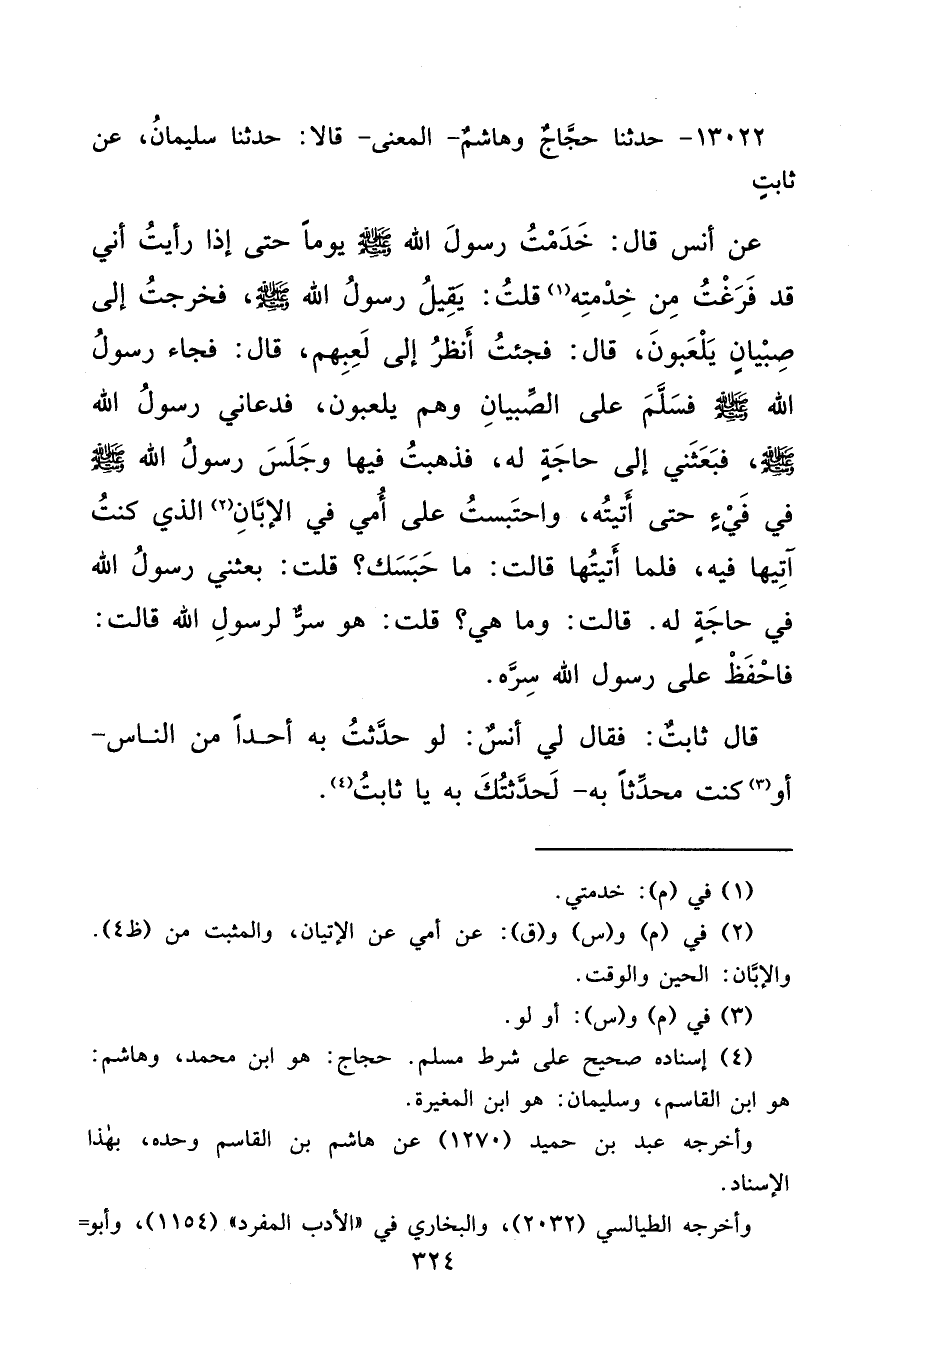 ١٣٠٢٢- حدثنا حجَّاجٌ وهاشمٌ- المعنى- قالا: حدثنا سليمانُ، عن
ثابتٍ
عن أنس قال: خَدَمْتُ رسولَ الله ﷺ يوماً حتى إذا رأيتُ أني
قد فَرَغْتُ مِن خِدْمتِه(١) قلتُ: يَقِيلُ رسولُ الله ﷺ، فخرجتُ إلى
صِبْيانٍ يَلْعَبونَ، قال: فجئتُ أَنظرُ إلى لَعِبِهم، قال: فجاء رسولُ
الله ﷺ فسَلَّمَ على الصِّبيانِ وهم يلعبون، فدعاني رسولُ الله
ﷺ، فبَعَثَني إلى حاجَةٍ له، فذهبتُ فيها وجَلَسَ رسولُ الله ﷺ
في فَيْءٍ حتى أَتيتُه، واحتَبستُ على أُمي في الإبَّانِ(٢) الذي كنتُ
آتِيها فيه، فلما أَتيتُها قالت: ما حَبَسَك؟ قلت: بعثني رسولُ الله
في حاجَةٍ له. قالت: وما هي؟ قلت: هو سرٌّ لرسولِ الله قالت:
فاحْفَظْ على رسول الله سِرَّه.
قال ثابتٌ: فقال لي أنسٌ: لو حدَّثتُ به أحداً من الناس-
أو(٣) كنت محدِّثاً به- لَحدَّثتُكَ به يا ثابتُ(٤).
(١) في (م): خدمتي.
(٢) في (م) و(س) و(ق): عن أمي عن الإتيان، والمثبت من (ظ٤).
والإبَّان: الحين والوقت.
(٣) في (م) و(س): أو لو.
(٤) إسناده صحيح على شرط مسلم. حجاج: هو ابن محمد، وهاشم:
هو ابن القاسم، وسليمان: هو ابن المغيرة.
وأخرجه عبد بن حميد (١٢٧٠) عن هاشم بن القاسم وحده، بهٰذا
الإسناد.
وأخرجه الطيالسي (٢٠٣٢)، والبخاري في «الأدب المفرد» (١١٥٤)، وأبو=
٣٢٤